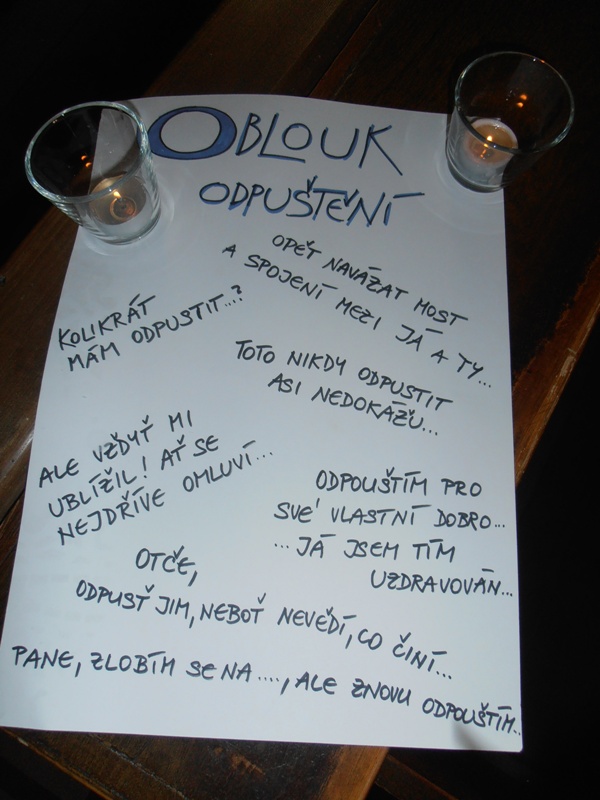 OBLOUK
ODPUŠTĚNÍ
OPĚT NAVÁZAT MOST
A SPOJENÍ MEZI JÁ A TY...
KOLIKRÁT
MÁM ODPUSTIT...?
TOTO NIKDY ODPUSTIT
ASI NEDOKÁŽU...
ALE VŽDYŤ MI
UBLÍŽIL! AŤ SE
NEJDŘÍVE OMLUVÍ...
ODPOUŠTÍM PRO
SVÉ VLASTNÍ DOBRO...
...JÁ JSEM TÍM
UZDRAVOVÁN...
OTČE,
ODPUSŤ JIM, NEBOŤ NEVĚDÍ, CO ČINÍ...
PANE, ZLOBÍM SE NA ...., ALE ZNOVU ODPOUŠTÍM..